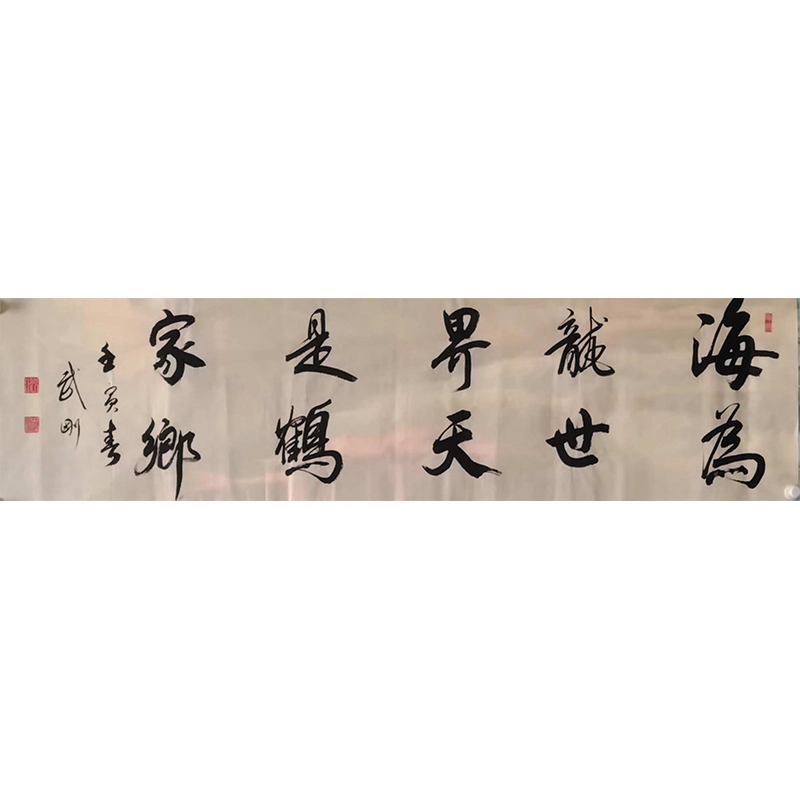 海為
龍世
界天
是鶴
家鄉
壬寅春
武剛